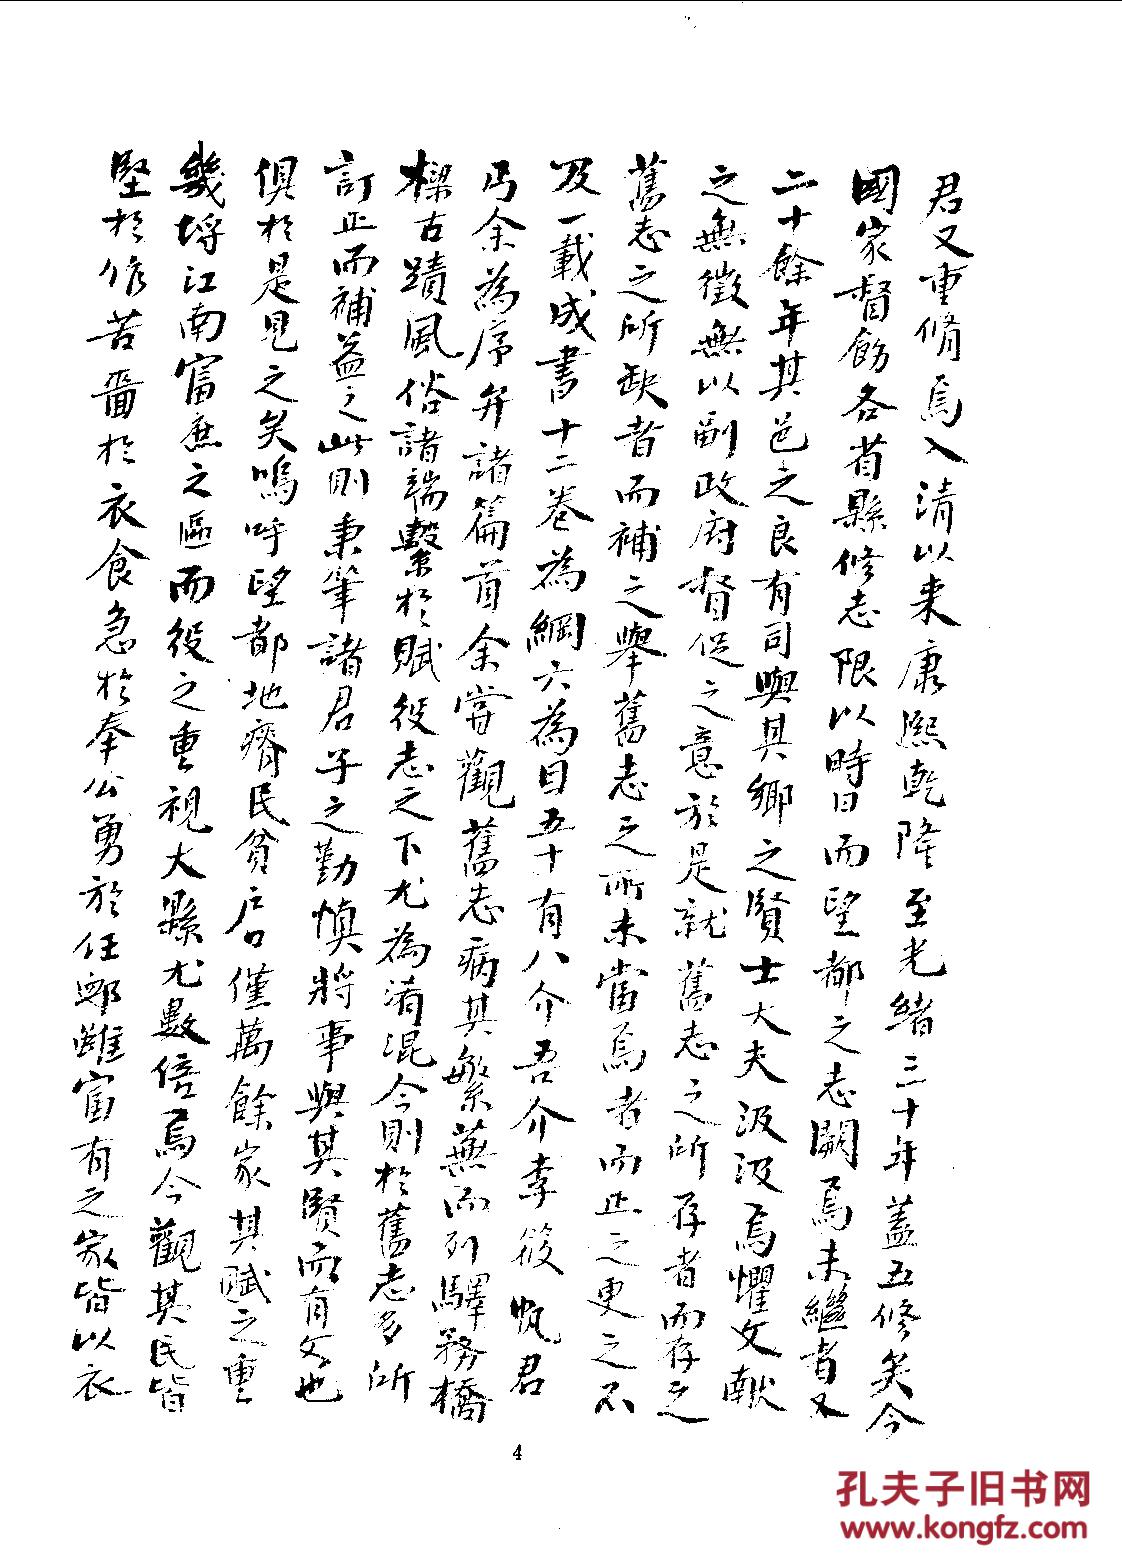 君又重脩焉入清以来康熙乾隆至光緒三十年蓋五修矣今
國家督飭各省縣修志限以時日而望都之志闕焉未繼者又
二十餘年其邑之良有司與其鄉之賢士大夫汲汲焉懼文献
之無徵無以副政府督促之意於是就舊志之所存者而存之
舊志之所缺者而補之舉舊志之所未當焉者而正之更之不
及一載成書十二卷為綱六為目五十有八介吾介李筱帆君
丐余為序弁諸篇首余嘗觀舊志病其繁蕪而列驛務橋
樑古蹟風俗諸端繫於賦役志之下尤為淆混今則於舊志多所
訂正而補益之此則秉筆諸君子之勤慎將事與其賢而有文也
俱於是見之矣嗚呼望都地瘠民貧户口僅萬餘家其賦之重
幾埒江南富庶之區而役之重視大縣尤數倍焉今觀其民皆
堅於作苦嗇於衣食急於奉公勇於任邺雖富有之家皆以衣
4
孔夫子旧书网
www.kongfz.com